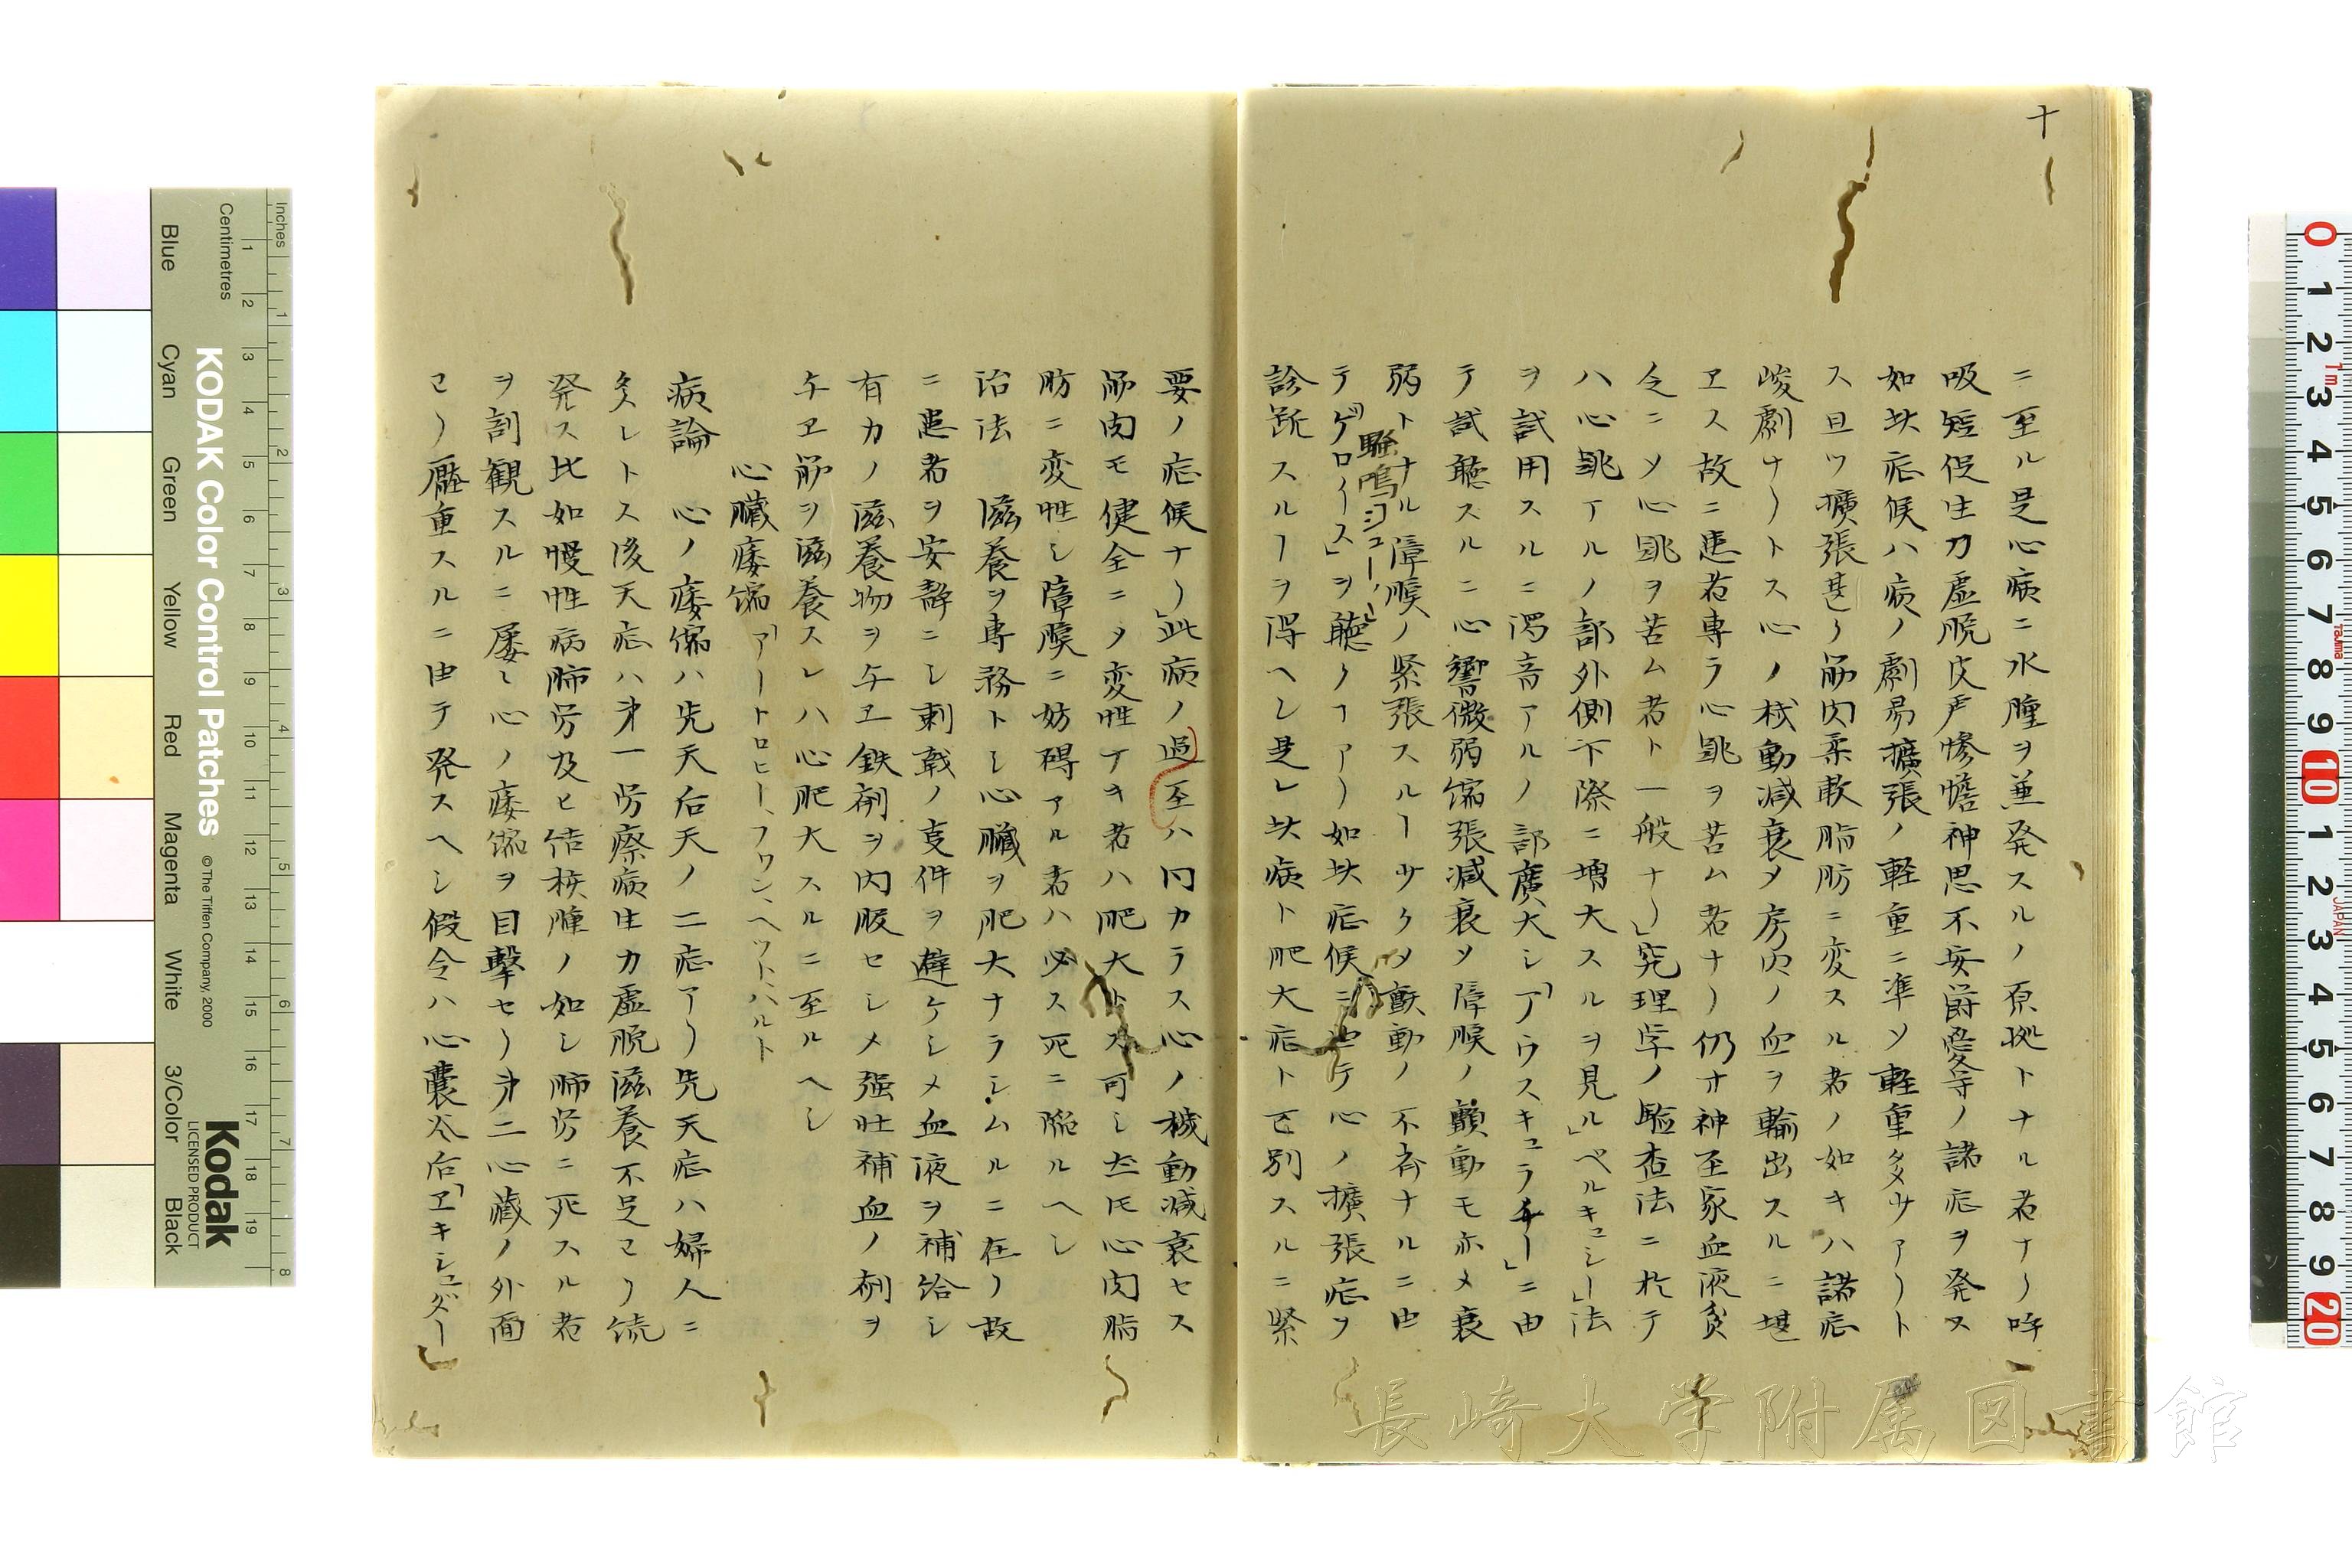 十
ニ至ル是心病ニ水腫ヲ兼発スルノ原拠トナル者ナリ呼
吸短促生力虚脱皮色惨憺神思不安欝憂等ノ諸症ヲ発ス
如此症候ハ病ノ劇易擴張ノ軽重ニ準ソ軽重多少アリト
ス且ツ擴張甚シ筋肉柔軟脂肪ニ変スル者ノ如キハ諸症
峻劇ナリトス心ノ機動減衰メ房内ノ血ヲ輸出スルニ堪
ヱス故ニ患者専ラ心跳ヲ苦ム者ナリ仍才神至家血液貧
乏ニソ心跳ヲ苦ム者ト一般ナリ」究理学ノ験査法ニ於テ
ハ心跳アルノ部外側下際ニ増大スルヲ見ル」「ペルキュシー」法
ヲ試用スルニ濁音アルノ部廣大シ「アウスキュラチー」ニ由
テ試聴スルニ心響微弱縮張減衰ソ障膜ノ顫動モ亦メ衰
弱トナル障膜ノ緊張スルヿ少ク顫動ノ不斉ナルニ由
騒鳴ヨシュー
テ「ゲロイース」ヲ聴クヿアリ如此症候ニ由テ心ノ擴張症ヲ
診断スルヿヲ得ヘシ是レ此病ト肥大症ト区別スルニ緊
要ノ症候ナリ」此病ノ過至ハ同カラス心ノ機動減衰セス
筋肉モ健全ニメ変性ナキ者ハ肥大トス可シ尓𪜈心肉脂
肪ニ変性シ障膜ニ妨碍アル者ハ必ス死ニ陥ルヘシ
治法 滋養ヲ専務トシ心臓ヲ肥大ナラシムルニ在リ故
ニ患者ヲ安静ニシ刺戟ノ事件ヲ避ケシメ血液ヲ補給シ
有力ノ滋養物ヲ与ヱ鉄剤ヲ内服セシメ強壮補血ノ剤ヲ
与ヱ筋ヲ滋養スレハ心肥大スルニ至ルヘシ
心臓痿縮「アートロヒー、フワン、ヘット、ハルト
病論 心ノ痿縮ハ先天后天ノ二症アリ先天症ハ婦人ニ
多シトス後天症ハ第一労瘵病生力虚脱滋養不足ヨリ続
発ス比如慢性病肺労及ヒ結核腫ノ如シ肺労ニ死スル者
ヲ剖観スルニ屡々心ノ痿縮ヲ目撃セリ第二心蔵ノ外面
ヨリ壓重スルニ由テ発スヘシ假令ハ心嚢炎后「ヱキシュダー」